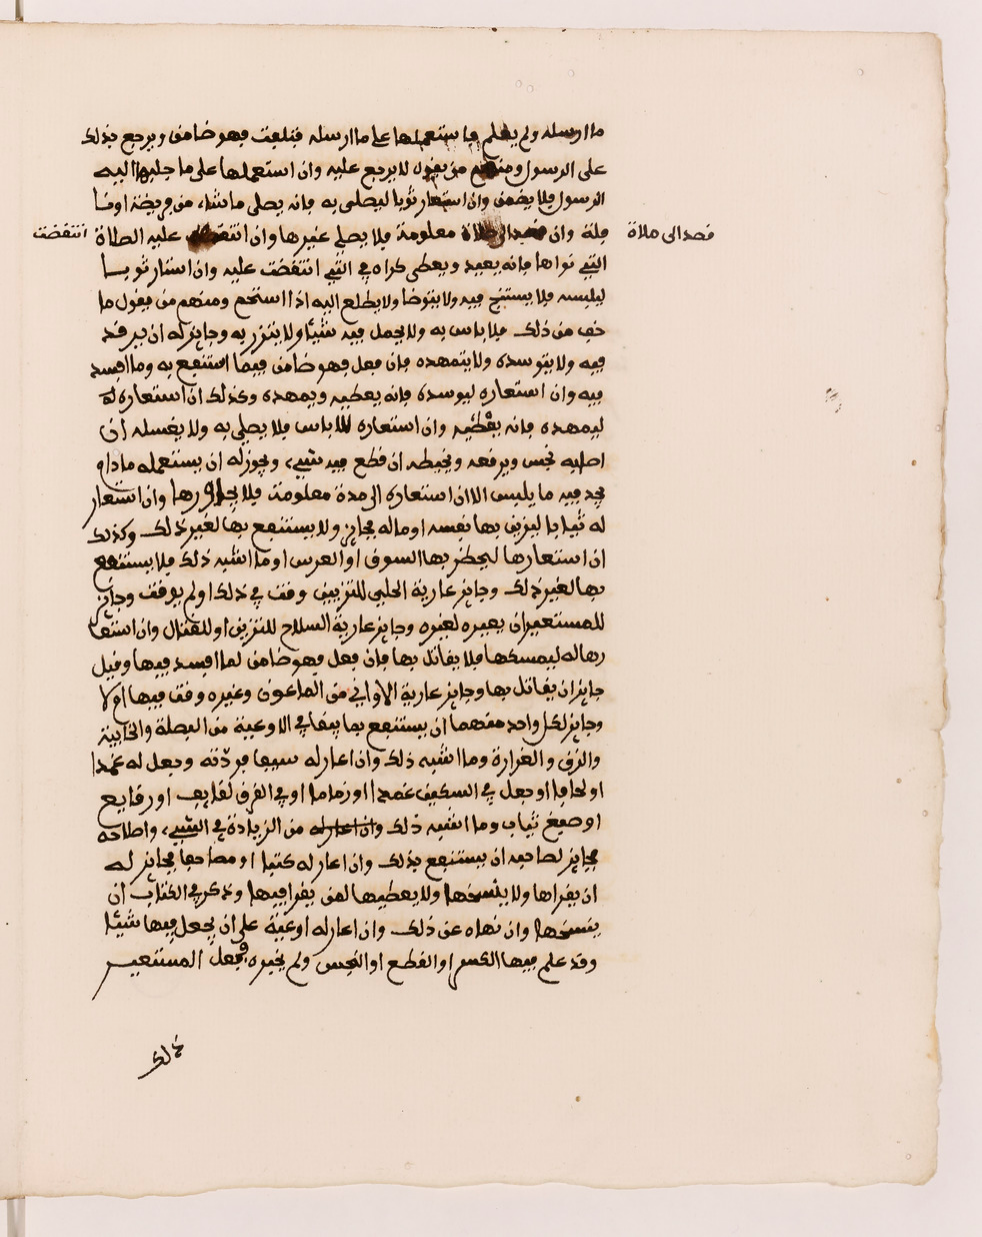 ما ارسله ولم يعلم فاستعملها على ما ارسله فتلفت فهو ضامن ويرجع بذلك
على الرسول ومنهم من يقول لا يرجع عليه وان استعملها على ما جلبها اليه
الرسول فلا يضمن وان استعار ثوبا ليصلي به فانه يصلي ما شاء من فريضة او نا
فلة وان قصد الى صلاة معلومة فلا يصلي غيرها وان انتقضت عليه الصلاة
قصد الى صلاة
انتقضت
التي نواها فانه يعيد ويعطي كراه في التي انتقضت عليه وان استار ثوبا
ليلبسه فلا يستنج فيه ولا يتوضا ولا يطلع اليه اذا استحم ومنهم من يقول ما
خف من ذلك فلا باس به ولا يحمل فيه شيئا ولا يتزر به وجايز له ان يرقد
فيه ولا يتوسده ولا يتمهده فان فعل فهو ضامن فيما استنفع به وما افسد
فيه وان استعاره ليوسده فانه يعطيه ويمهده وكذلك ان استعاره له
ليمهده فانه يغطيه وان استعاره للباس فلا يصلي به ولا يغسله ان
اصابه نجس ويرفعه ويخيطه ان قطع فيه شيء ويجوز له ان يستعمله مادام
يجد فيه ما يلبس الا ان استعاره الى مدة معلومة فلا يجاورها وان استعار
له ثيابا ليزين بها نفسه او ماله فجايز ولا يستنفع بها لغير ذلك وكذلك
ان استعارها ليحضر بها السوق او العرس او ما اشبه ذلك فلا يستنفع
بها لغير ذلك وجايز عارية الحلي للتزيين وقت في ذلك او لم يوقت وجايز
للمستعير ان يعيره لغيره وجايز عارية السلاح للتزين او للقتال وان استعا
رها له ليمسكها فلا يقاتل بها فان فعل فهو ضامن لما افسد فيها وقيل
جايز ان يقاتل بها وجايز عارية الاواني من الماعون وغيره وقت فيها او لا
وجايز لكل واحد منهما ان يستنفع بما يبقا في الاوعية من البصلة والخابية
والزق والغرارة وما اشبه ذلك وان اعار له سيفا فردته وجعل له غمدا
او لحافا او جعل في السكين غمدا او زماما او في الفرق لفايف او رقايع
او صبغ ثياب وما اشبه ذلك وان اعار له من الزيادة في الشيء واصلاحه
فجايز لصاحبه ان يستنفع بذلك وان اعار له كتبا او مصاحفا فجايز له
ان يقراها ولا ينسخها ولا يعطيها لمن يقرا فيها وذكر في الكتاب ان
ينسخها وان نهاه عن ذلك وان اعار له اوعية على ان يجعل فيها شيئا
وقد علم فيها الكسر او القطع او النجس ولم يخبره فجعل المستعير
ذلك